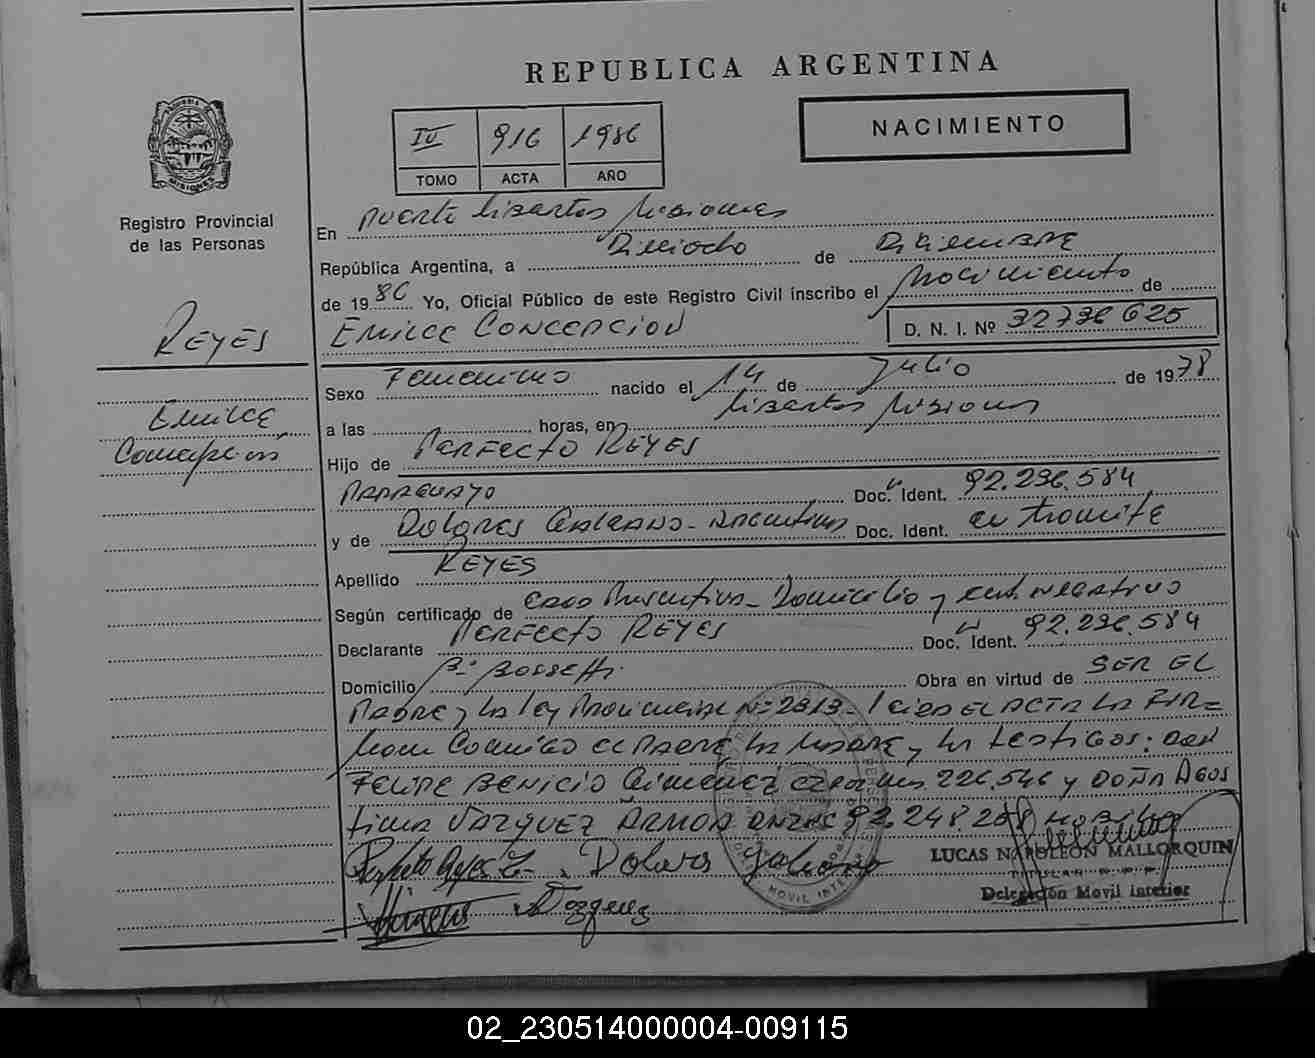 REPUBLICA ARGENTINA
IV 916 1986
TOMO ACTA AÑO
NACIMIENTO
MISIONES
Registro Provincial
de las Personas
En Puerto Libertad Misiones
República Argentina, a Dieciocho de Diciembre
de 1986 Yo, Oficial Público de este Registro Civil inscribo el Nacimiento de
EMILCE CONCEPCION D. N. I. Nº 32736625
REYES
Emilce
Concepción
Sexo Femenino nacido el 14 de Julio de 1978
a las horas, en Libertad Misiones
Hijo de PERFECTO REYES
PARAGUAYO Doc. Ident. 92.236.584
y de DOLORES Doc. Ident. en tramite
Apellido REYES
Según certificado de Domicilio y
Declarante PERFECTO REYES Doc. Ident. 92.236.584
Domicilio Bº Bossetti Obra en virtud de SER EL
PADRE y la ley Provincial Nº 2313 - leida EL ACTA LA FIR=
man conmigo el PADRE la MADRE y los testigos: DON
FELIPE BENICIO Gimenez 226.546 y DOÑA AGUS
tina VAZQUEZ 92.248.258
Dolores
LUCAS NAPOLEON MALLORQUIN
TITULAR
Delegación Movil Interior
MOVIL INTE
Vazquez
02_230514000004-009115